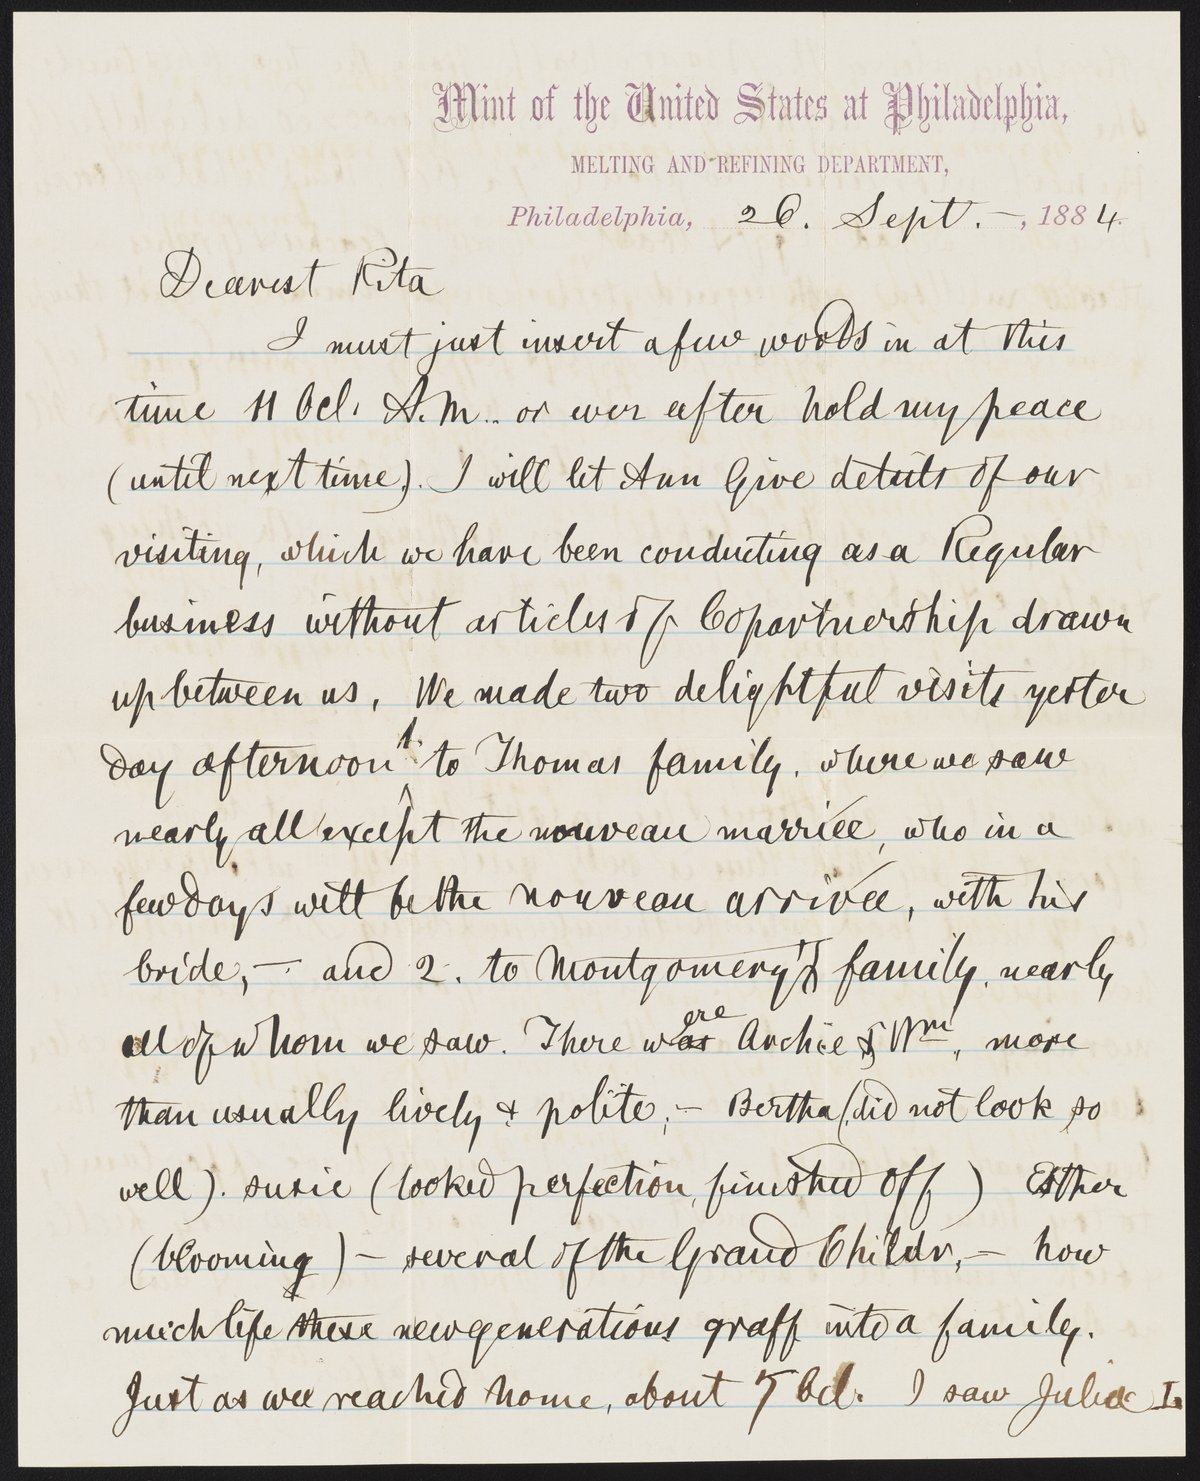 Mint of the United States at Philadelphia,
MELTING AND REFINING DEPARTMENT,
Philadelphia, 26. Sept. —, 1884.
Dearest Rita
I must just insert a few words in at this
time 11 Ocl. A.M.. or ever after hold my peace
(until next time). I will let Ann Give details of our
visiting, which we have been conducting as a Regular
business without articles of Copartnership drawn
up between us, We made two delightful visits yester
day afternoon 1. to Thomas family, where we saw
nearly all except the nouveau marriée, who in a
few days will be the nouveau arrivée, with his
bride, — and 2. to Montgomery's family, nearly
all of whom we saw. There was ere Archie & Wm, more
than usually lively & polite, — Bertha (did not look so
well). Susie (looked perfection, finished off) Esther
(blooming) — several of the Grand Childr, — how
much life these new generations graff into a family.
Just as wee reached home, about 5 Ocl. I saw Julia I.